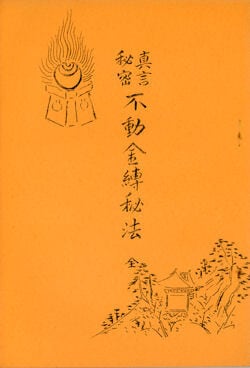 真言
秘密
不動金縛秘法
全